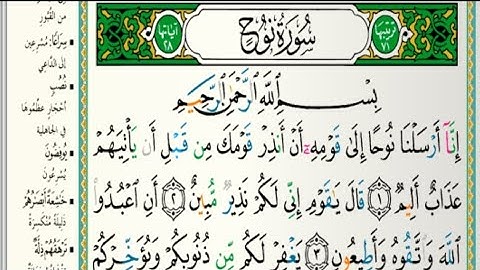 آياتها ٢٨
سُورَةُ نُوحٍ
ترتيبها ٧١
بِسْمِ اللَّهِ الرَّحْمَٰنِ الرَّحِيمِ
إِنَّآ أَرْسَلْنَا نُوحًا إِلَىٰ قَوْمِهِۦٓ أَنْ أَنذِرْ قَوْمَكَ مِن قَبْلِ أَن يَأْتِيَهُمْ
عَذَابٌ أَلِيمٌ ١ قَالَ يَٰقَوْمِ إِنِّى لَكُمْ نَذِيرٌ مُّبِينٌ ٢ أَنِ ٱعْبُدُوا۟
ٱللَّهَ وَٱتَّقُوهُ وَأَطِيعُونِ ٣ يَغْفِرْ لَكُم مِّن ذُنُوبِكُمْ وَيُؤَخِّرْكُمْ
من القُبُورِ
سِرَاعًا: مُسْرِعين
إلى الدَّاعِي
نُصُبٍ
أحْجَارٍ عَظَّمُوهَا
في الجاهلية
يُوفِضُونَ
يُسْرِعُونَ
خَاشِعَةً أَبْصَارُهُمْ
ذَلِيلَةً مُنْكَسِرَةً
تَرْهَقُهُمْ ذِلَّةٌ